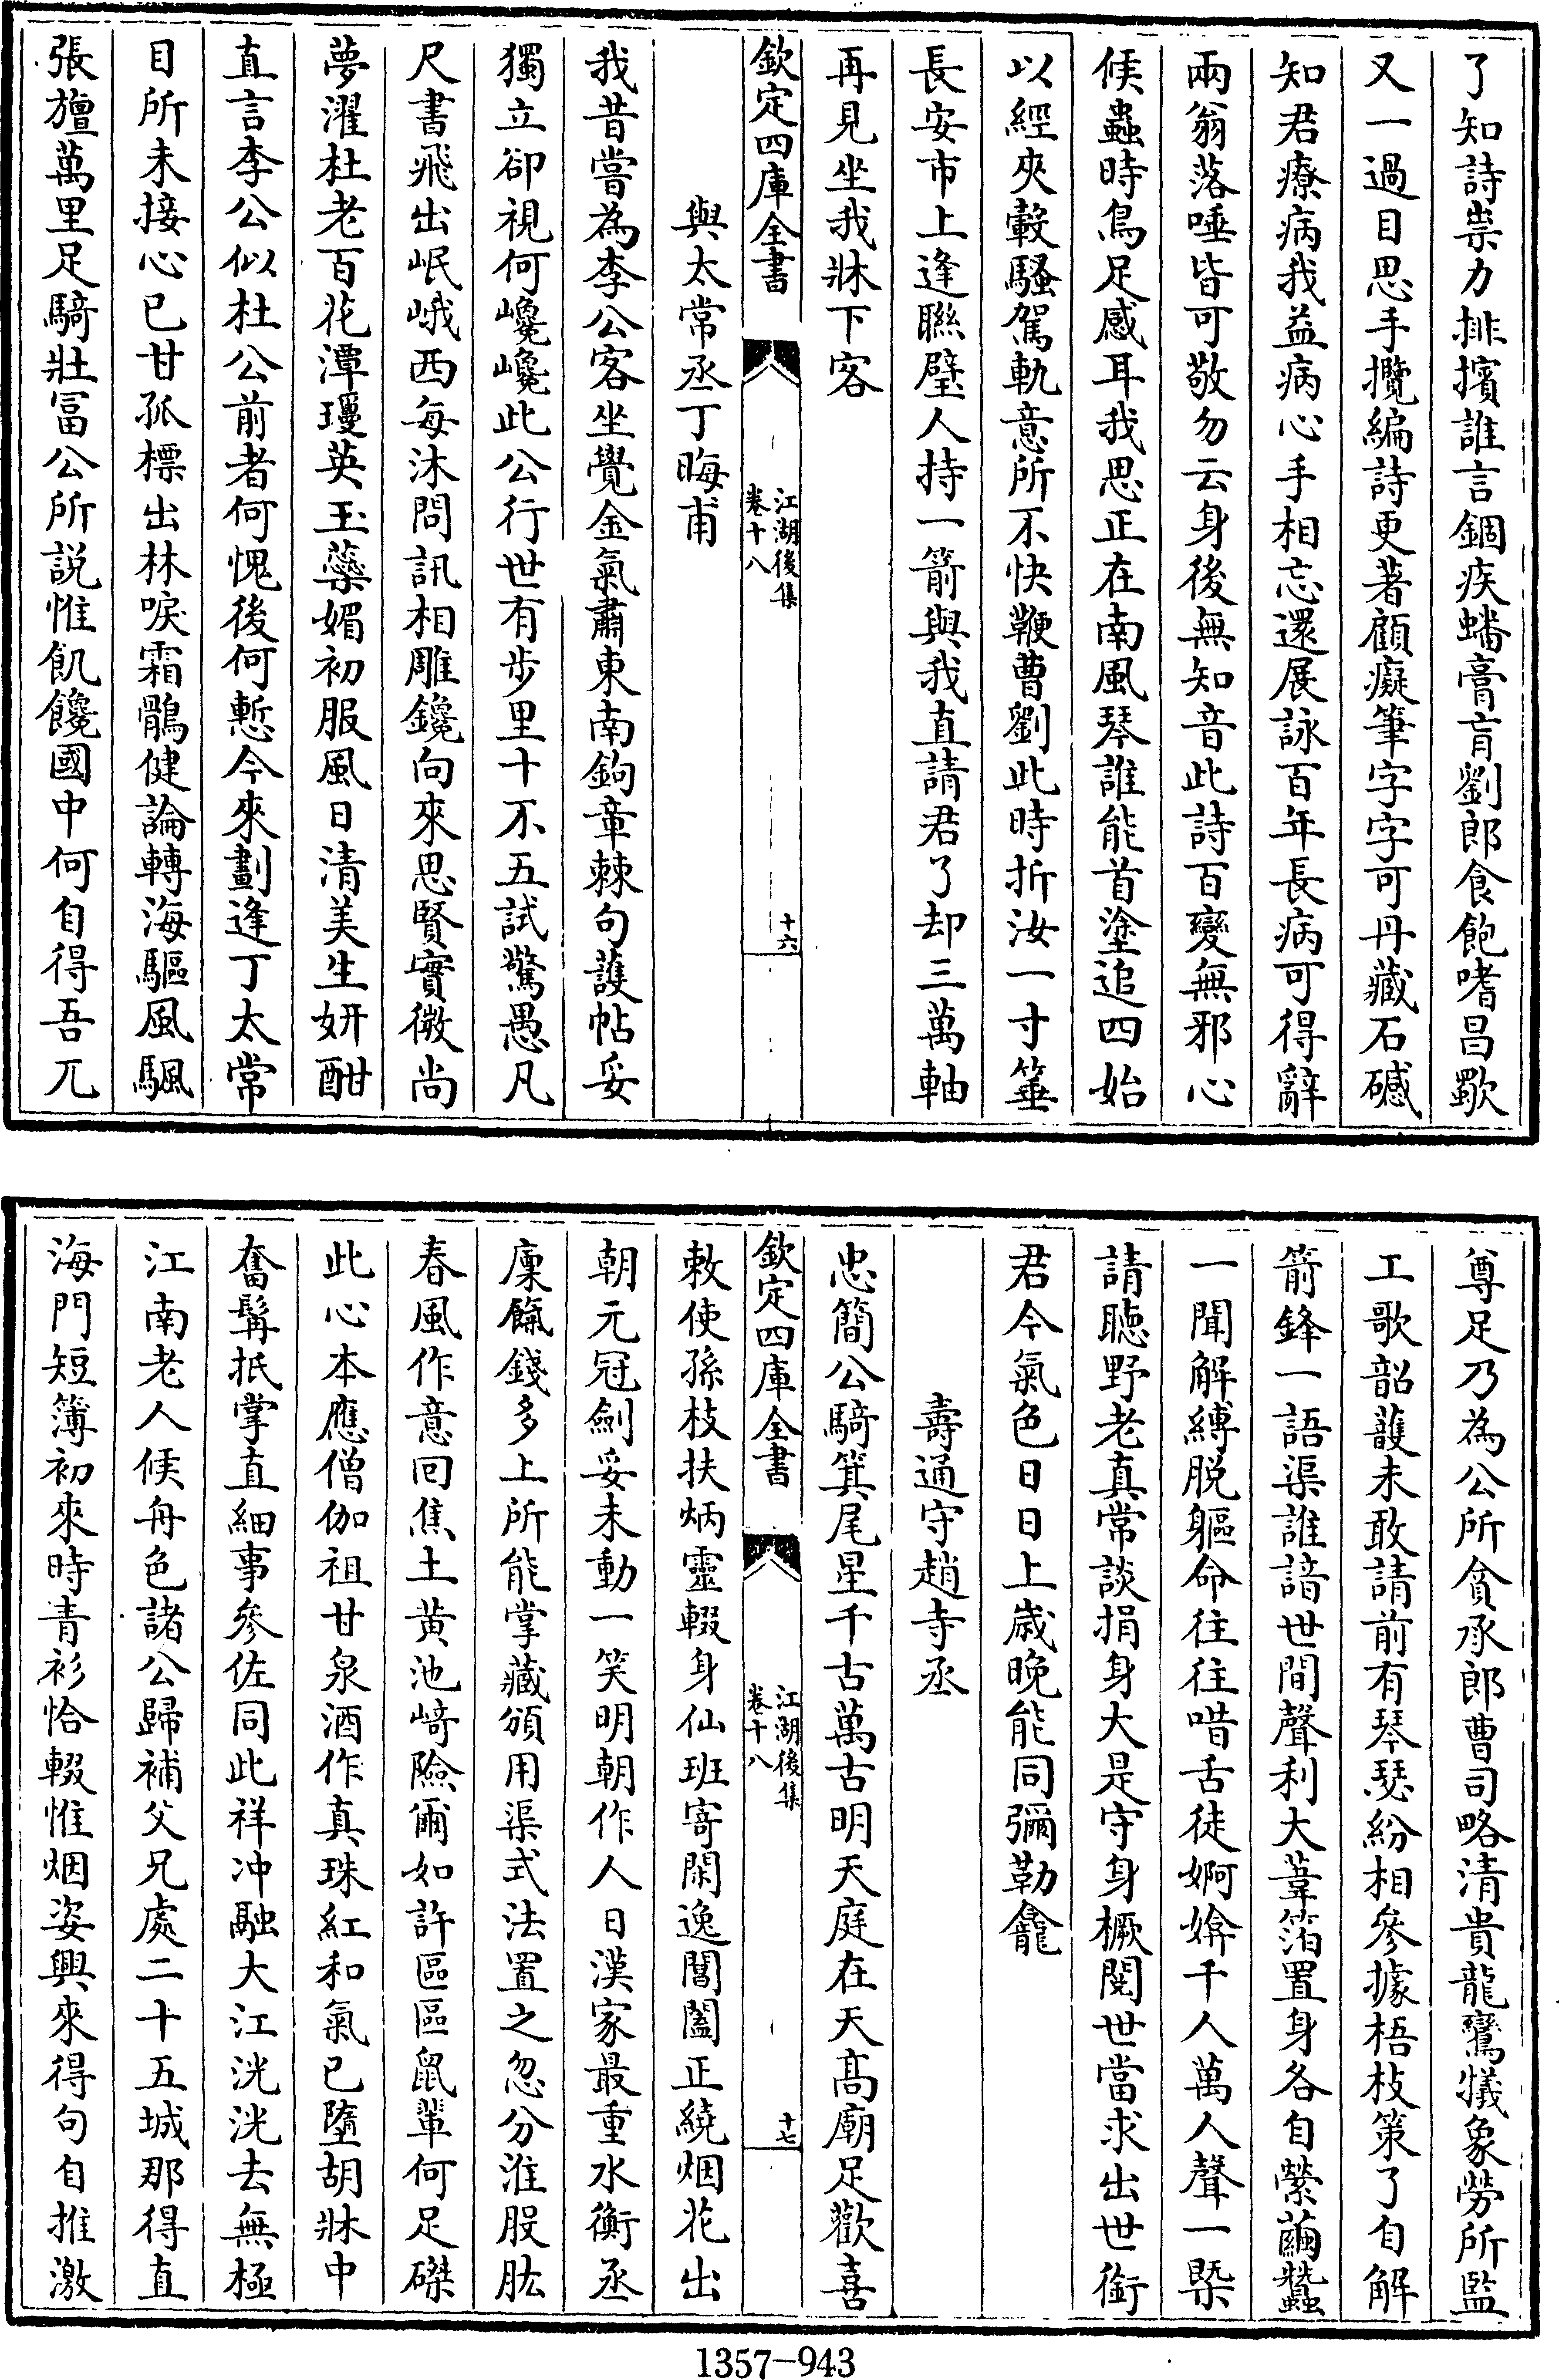 了知詩祟力排擯誰言錮疾蟠膏肓劉郎食飽嗜昌歜
又一過目思手攬編詩更著顧癡筆字字可丹藏石磩
知君療病我益病心手相忘還展詠百年長病可得辭
兩翁落唾皆可敬勿云身後無知音此詩百變無邪心
候蟲時鳥足感耳我思正在南風琴誰能首塗追四始
以經夾轂騷駕軌意所不快鞭曹劉此時折汝一寸箠
長安市上逢聯璧人持一箭與我直請君了却三萬軸
再見坐我牀下客
欽定四庫全書
江湖後集
卷十八
十六
與太常丞丁晦甫
我昔嘗為李公客坐覺金氣肅東南鉤章棘句護帖妥
獨立卻視何巉巉此公行世有步里十不五試驚愚凡
尺書飛出岷峨西每沐問訊相雕鑱向來思賢實微尚
夢濯杜老百花潭瓊英玉蘂媚初服風日清美生妍酣
直言李公似杜公前者何愧後何慙今來劃逢丁太常
目所未接心已甘孤標出林唳霜鶻健論轉海驅風颿
張旜萬里足騎壯冨公所説惟飢饞國中何自得吾兀
尊足乃為公所貪承郎曹司略清貴龍鸞犧象勞所監
工歌韶頀未敢請前有琴瑟紛相參據梧枝策了自解
箭鋒一語渠誰諳世間聲利大葦箔置身各自縈繭蠶
一聞解縛脱軀命往往唶舌徒婀媕千人萬人聲一槩
請聽野老真常談捐身大是守身橛閱世當求出世銜
君今氣色日日上歲晚能同彌勒龕
壽通守趙寺丞
忠簡公騎箕尾星千古萬古明天庭在天高廟足歡喜
欽定四庫全書
江湖後集
卷十八
十七
敕使孫枝扶炳靈輟身仙班寄閑逸閶闔正繞烟花出
朝元冠劍妥未動一笑明朝作人日漢家最重水衡丞
廩餼錢多上所能掌藏頒用渠式法置之忽分淮股肱
春風作意回焦土黄池﨑險爾如許區區鼠輩何足磔
此心本應僧伽祖甘泉酒作真珠紅和氣已墮胡牀中
奮髯抵掌直細事參佐同此祥冲融大江洸洸去無極
江南老人候舟色諸公歸補父兄處二十五城那得直
海門短簿初來時青衫恰輟惟烟姿興來得句自推激
1357-943